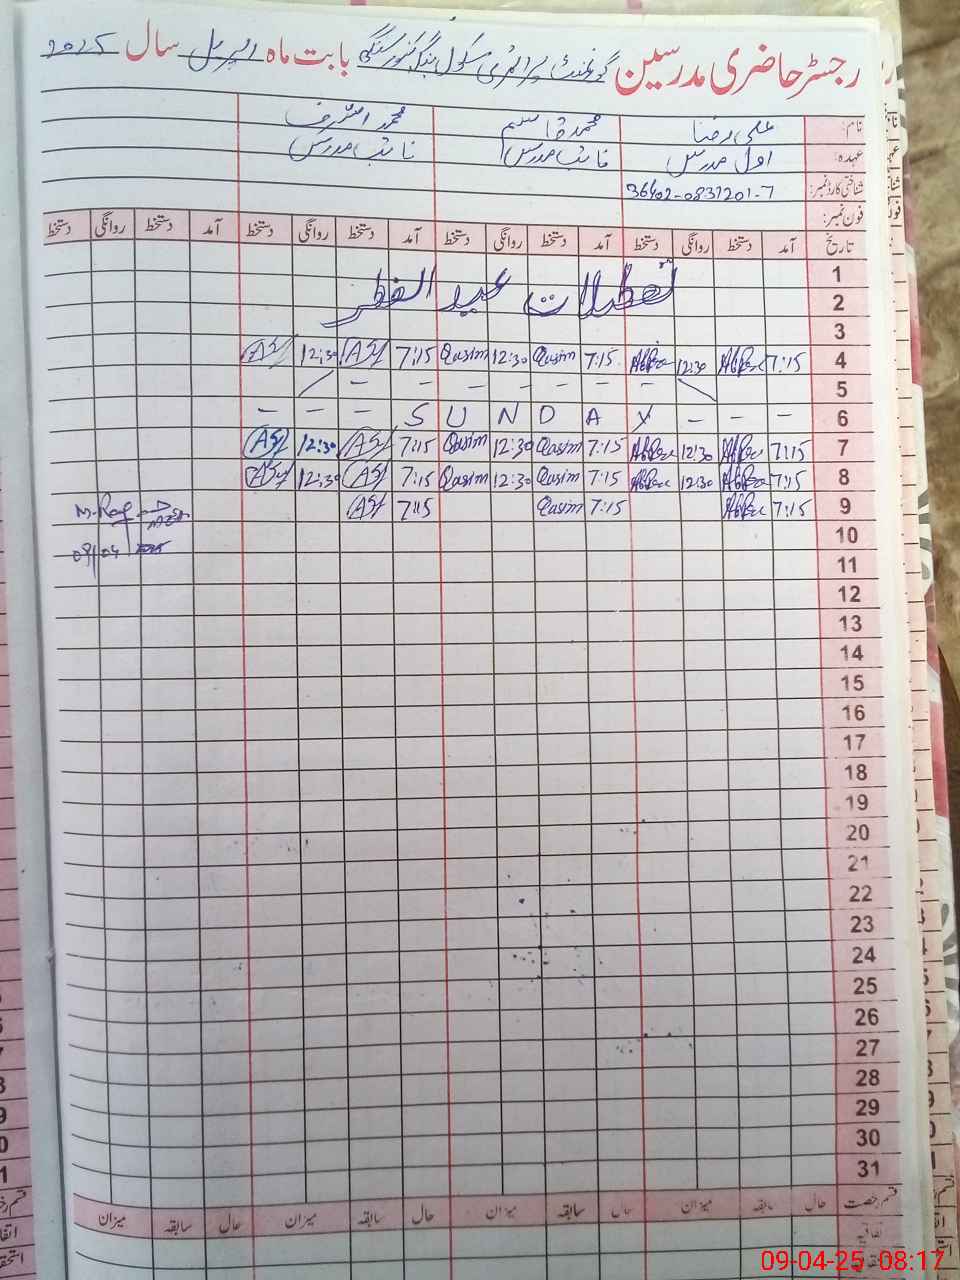 رجسٹر حاضری مدرسین گورنمنٹ پرائمری سکول بابت ماہ اپریل سال 2025
نام: علی رضا محمد قاسم محمد اشرف
عہدہ: اول مدرس نائب مدرس نائب مدرس
شناختی کارڈ نمبر: 36402-0831201-7
فون نمبر:
تاریخ آمد دستخط روانگی دستخط آمد دستخط روانگی دستخط آمد دستخط روانگی دستخط آمد دستخط روانگی دستخط
1
2 تعطیلات عید الفطر
3
4 7:15 12:30 7:15 Qasim 12:30 Qasim 7:15 12:30
5 - - - - - -
6 - - - S U N D A Y - - -
7 7:15 12:30 7:15 Qasim 12:30 Qasim 7:15 12:30
8 7:15 12:30 7:15 Qasim 12:30 Qasim 7:15 12:30
9 7:15 7:15 Qasim 7:15
09/04
10
11
12
13
14
15
16
17
18
19
20
21
22
23
24
25
26
27
28
29
30
31
قسم رخصت حال سابقہ میزان حال سابقہ میزان حال سابقہ میزان حال سابقہ میزان
اتفاقیہ
09-04-25 08:17